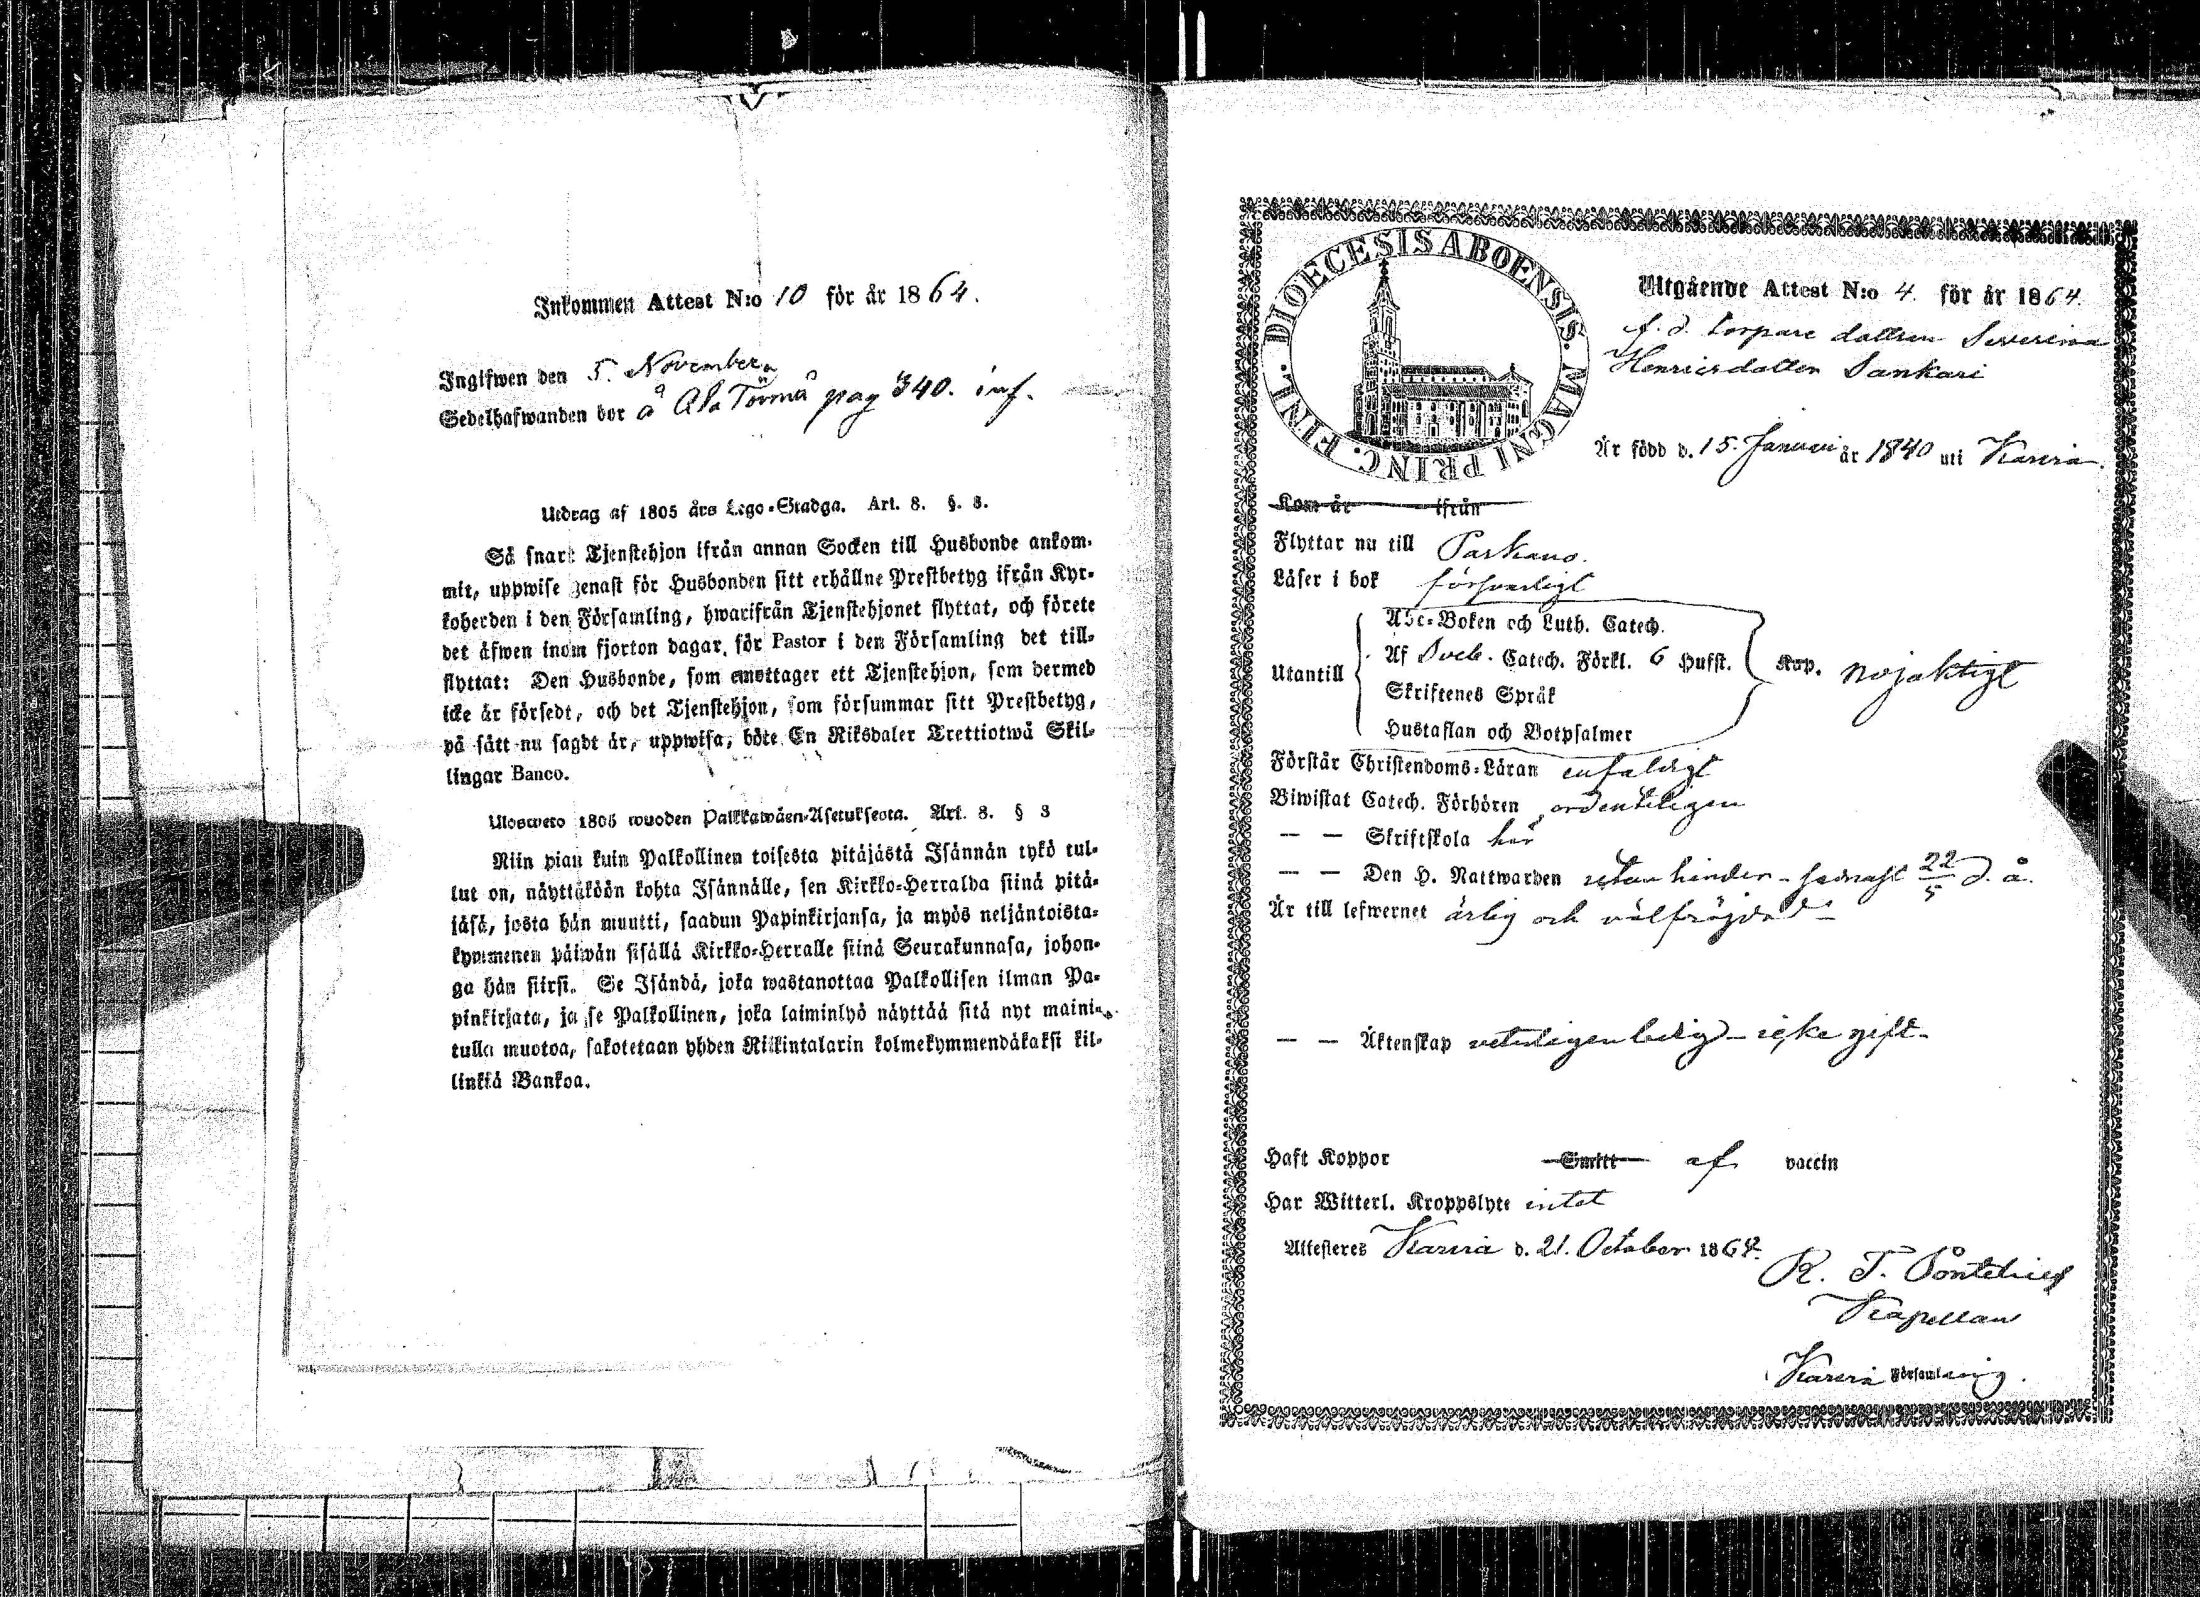 Inkommen Attest N:o 10 för år 1864.
Ingifwen den 5. November
Sedelhafwanden bor å Ala Törmä pag 340. inf.
Utdrag af 1805 års Lego-Stadga. Art. 8. §. 3.
Så snart Tjenstehjon ifrån annan Socken till Husbonde ankom-
mit, uppwise genast för Husbonden sitt erhållne Prestbetyg ifrån Kyr-
koherden i den Församling, hwarifrån Tjenstehjonet flyttat, och förete
det äfwen inom fjorton dagar, för Pastor i den Församling det till-
flyttat: Den Husbonde, som emottager ett Tjenstehjon, som dermed
icke är försedt, och det Tjenstehjon, som försummar sitt Prestbetyg,
på sätt nu sagdt är, uppwisa, böte En Riksdaler Trettiotwå Skil-
lingar Banco.
Ulosweto 1805 wuoden Palkkawäen-Asetuksesta. Art. 8. § 3
Niin pian kuin Palkollinen toisesta pitäjästä Isännän tykö tul-
lut on, näyttäköön kohta Isännälle, sen Kirkko-Herralda siinä pitä-
jäsä, josta hän muutti, saadun Papinkirjansa, ja myös neljäntoista-
kymmenen päiwän sisällä Kirkko-Herralle siinä Seurakunnasa, johon-
ga hän siirsi. Se Isändä, joka wastanottaa Palkollisen ilman Pa-
pinkirjata, ja se Palkollinen, joka laiminlyö näyttää sitä nyt maini-
tulla muotoa, sakotetaan yhden Riikintalarin kolmekymmendäkaksi kil-
linkiä Bankoa.
DIOECESIS ABOENSIS. MAGNI PRINC. FINL.
Utgående Attest N:o 4. för år 1864.
f. d. torpare dottren Severina
Henricsdotter Sankari
Är född d. 15. Januari år 1840 uti Karvia.
Kom år ifrån
Flyttar nu till Parkano.
Läser i bok försvarligt
Abc-Boken och Luth. Catech.
Utantill Af Sveb. Catech. Förkl. 6 Hufst. Kap. nöjaktigt
Skriftenes Språk
Hustaflan och Botpsalmer
Förstår Christendoms-Läran enfaldigt
Biwistat Catech. Förhören ordentligen
— — Skriftskola här
— — Den H. Nattwarden utan hinder - senast 22/5 d. å.
Är till lefwernet ärlig och välfräjdad -
— — Äktenskap veterligen ledig - icke gift -
Haft Koppor Smitt af vaccin
Har Witterl. Kroppslyte intet
Attesteres Karvia d. 21. October 1864.
R. T.
Kapellan
i Karvia Församling.